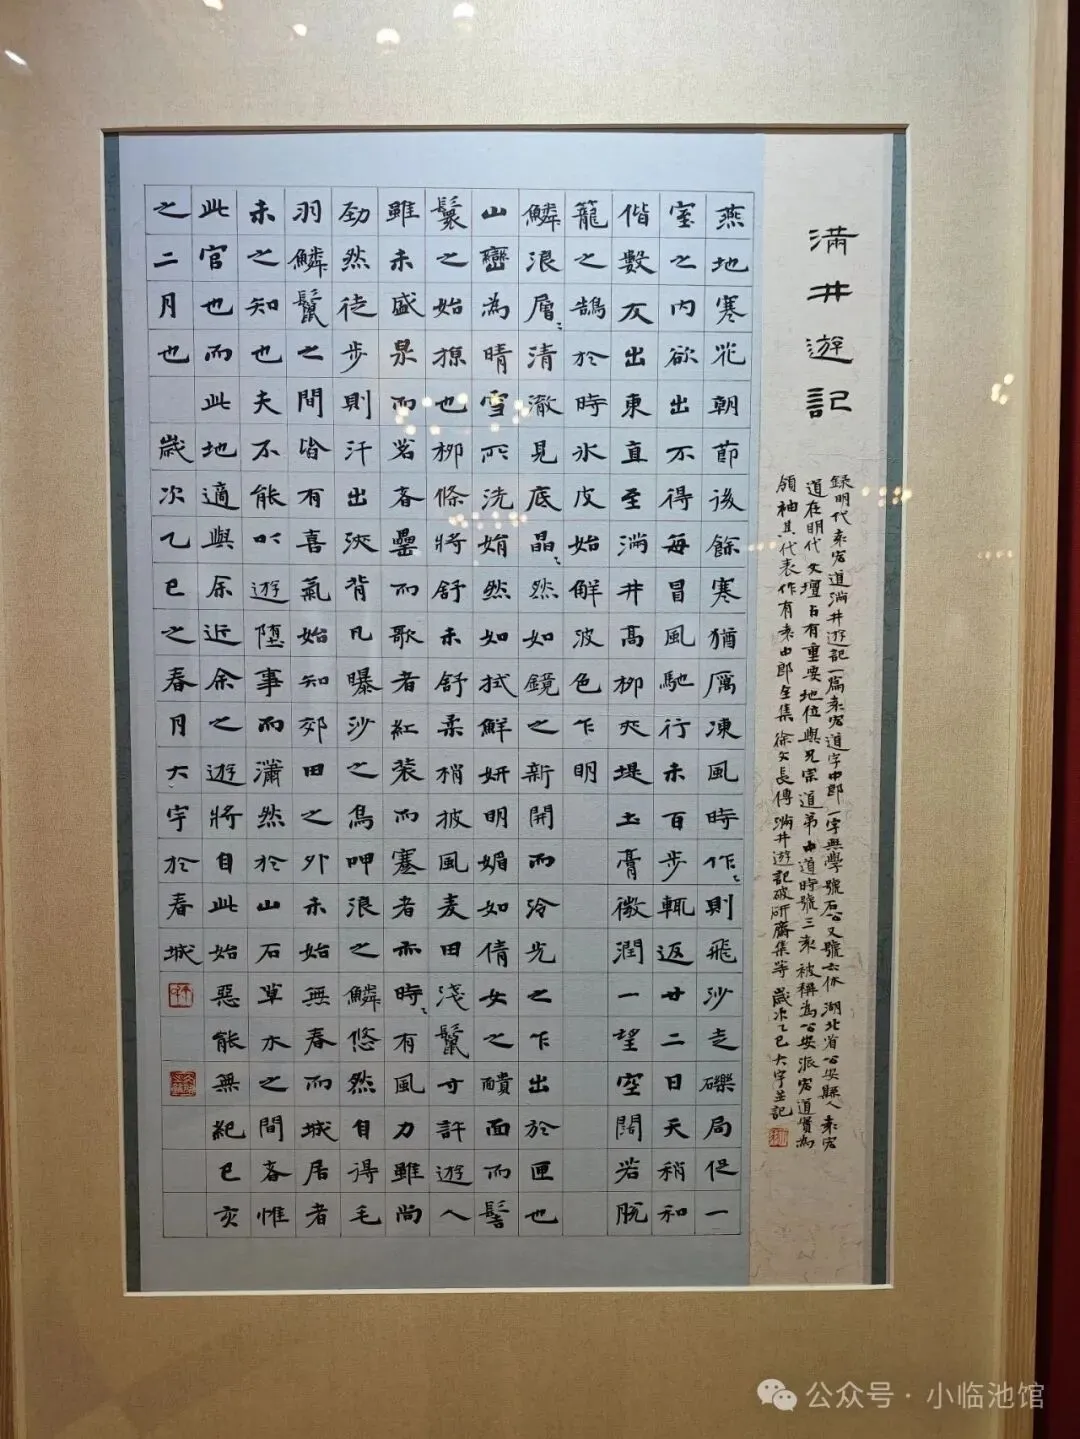 滿井遊記
録明代袁宏道滿井遊記一篇袁宏道字中郎一字無學號石公又號六休湖北省公安縣人袁宏
道在明代文壇占有重要地位與兄宗道弟中道時號三袁被稱為公安派宏道實為
領袖其代表作有袁中郎全集徐文長傳滿井遊記破研齋集等歲次乙巳大宇並記
燕地寒花朝節後餘寒猶厲凍風時作〻則飛沙走礫局促一
室之内欲出不得每冒風馳行未百步輒返廿二日天稍和
偕數友出東直至滿井高柳夾堤土膏微潤一望空闊若脫
籠之鵠於時氷皮始解波色乍明
鱗浪層〻清澈見底晶〻然如鏡之新開而冷光之乍出於匣也
山巒為晴雪所洗娟然如拭鮮妍明媚如倩女之靧面而髻
鬟之始掠也柳條將舒未舒柔梢披風麦田淺鬣寸許遊人
雖未盛泉而茗者罍而歌者紅裝而蹇者亦時〻有風力雖尚
劲然徒步則汗出浹背凡曝沙之鳥呷浪之鱗悠然自得毛
羽鱗鬣之間皆有喜氣始知郊田之外未始無春而城居者
未之知也夫不能以遊墮事而瀟然於山石草木之間者惟
此官也而此地適與余近余之遊將自此始惡能無紀己亥
之二月也 歲次乙巳之春月大宇於春城
公众号 · 小临池馆